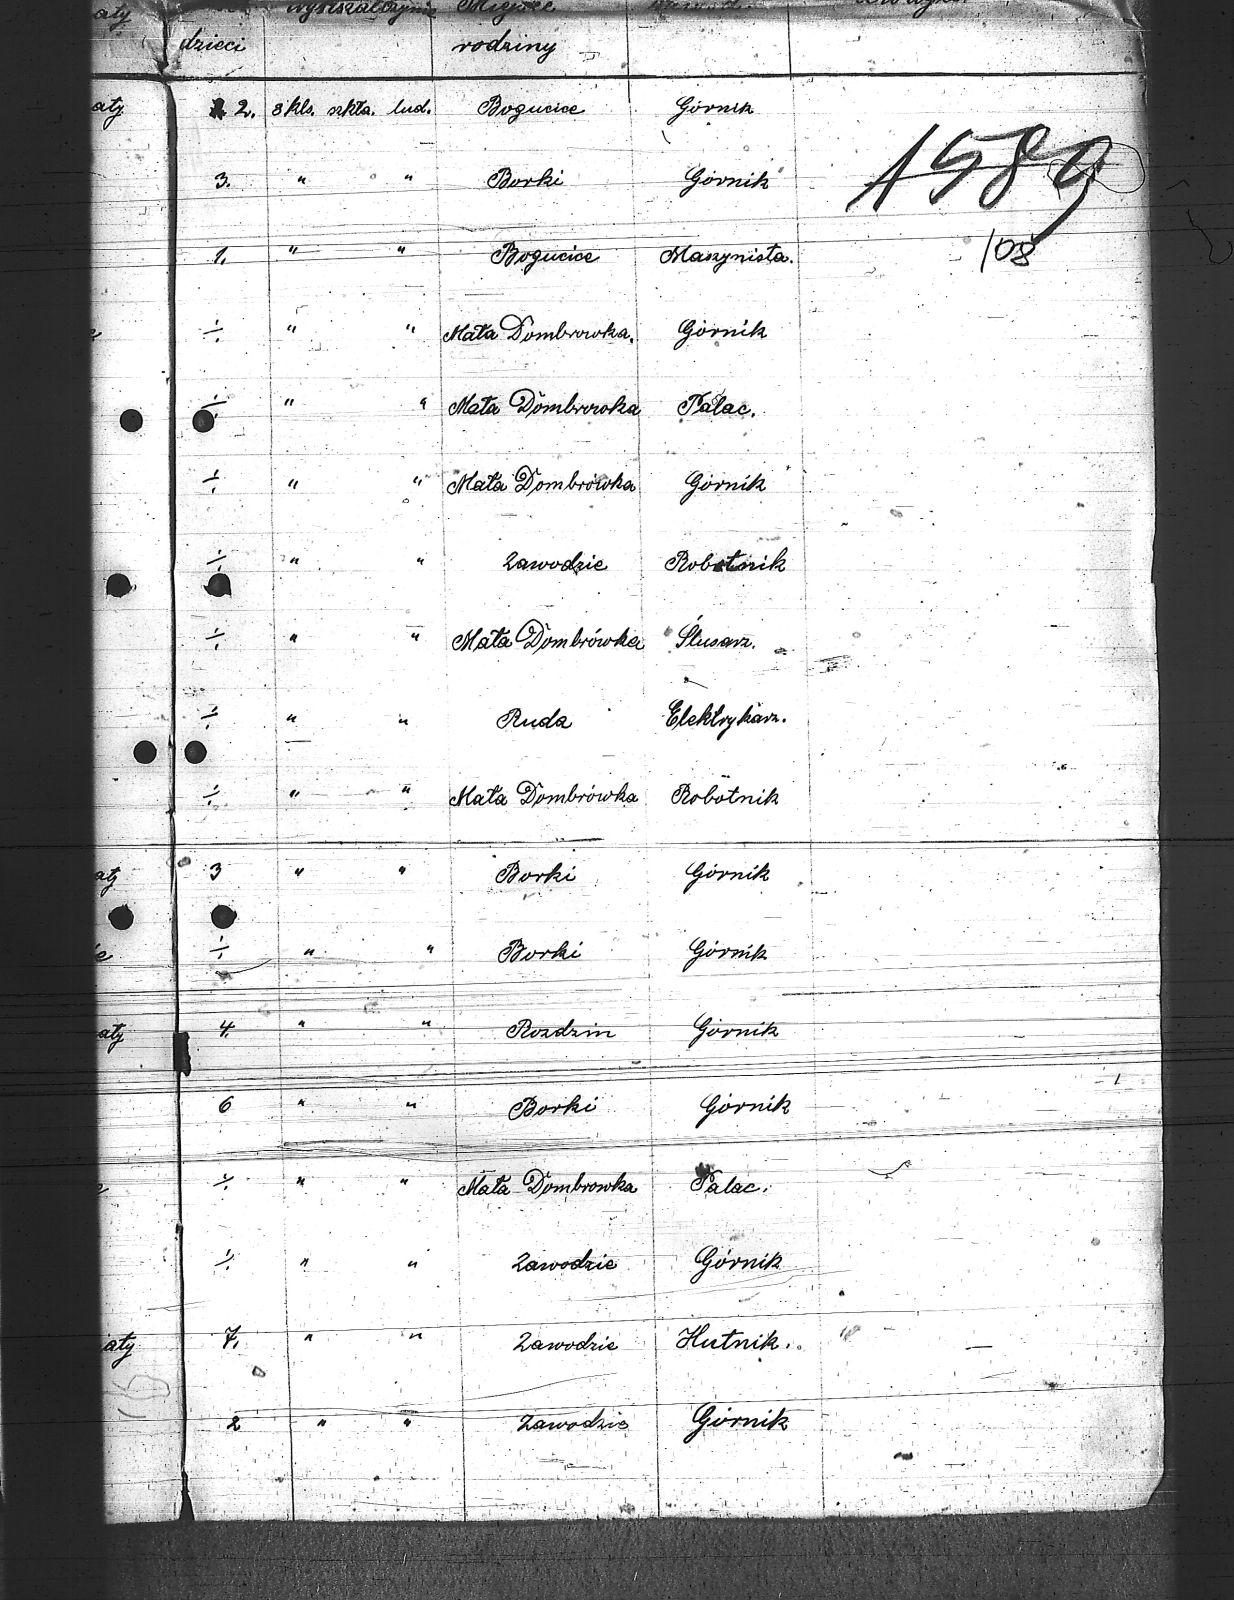 aty wykształcenie Miejsce
dzieci rodziny
aty 2. 8 kls. szkła. lud. Bogucice Górnik
1589
3. " " Borki Górnik
1. " " Bogucice Maszynista.
108
./. " " Mała Dombrowka. Górnik
./. " " Mała Dombrowka Palac.
./. " " Mała Dombrówka Górnik
./. " " Zawodzie Robotnik
./. " " Mała Dombrówka Ślusarz.
./. " " Ruda Elektrykarz.
./. " " Mała Dombrówka Robotnik
aty 3 " " Borki Górnik
./. " " Borki Górnik
aty 4. " " Rozdzin Górnik
6 " " Borki Górnik
./. " " Mała Dombrowka Palac.
./. " " Zawodzie Górnik
aty 7. " " Zawodzie Hutnik.
2 " " Zawodzie Górnik